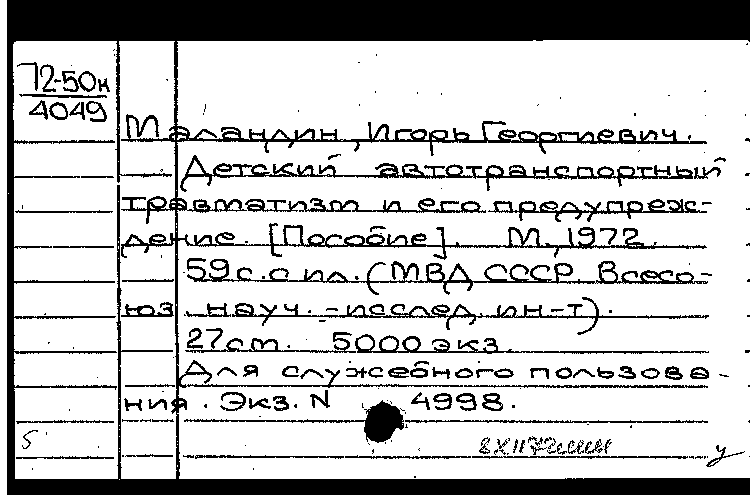 72-50н
4049
Маландин, Игорь Георгиевич.
Детский автотранспортный
травматизм и его предупреж-
дение. [Пособие]. М., 1972.
59 с. с ил. (МВД СССР. Всесо-
юз. науч.-исслед. ин-т).
27 см. 5000 экз.
Для служебного пользова-
ния. Экз. N 4998.
5
у